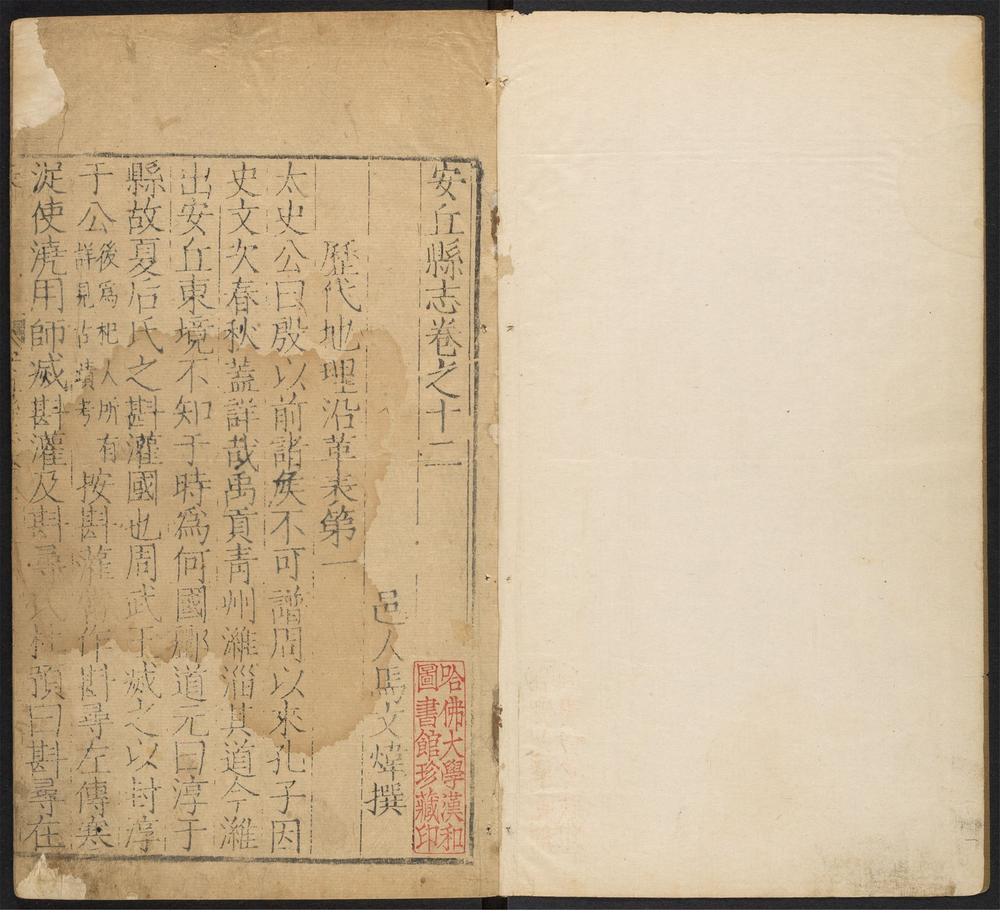 安丘縣志卷之十二
邑人馬文煒撰
歷代地理沿革表第一
太史公曰殷以前諸矦不可譜周以來孔子因
史文次春秋蓋詳哉禹貢青州濰淄其道今濰
出安丘東境不知于時爲何國酈道元曰淳于
縣故夏后氏之斟灌國也周武王滅之以封淳
于公後爲杞人所有詳見古蹟考按斟灌作斟尋左傳寒
浞使澆用師滅斟灌及斟尋氏杜預曰斟尋在
哈佛大學漢和
圖書館珍藏印